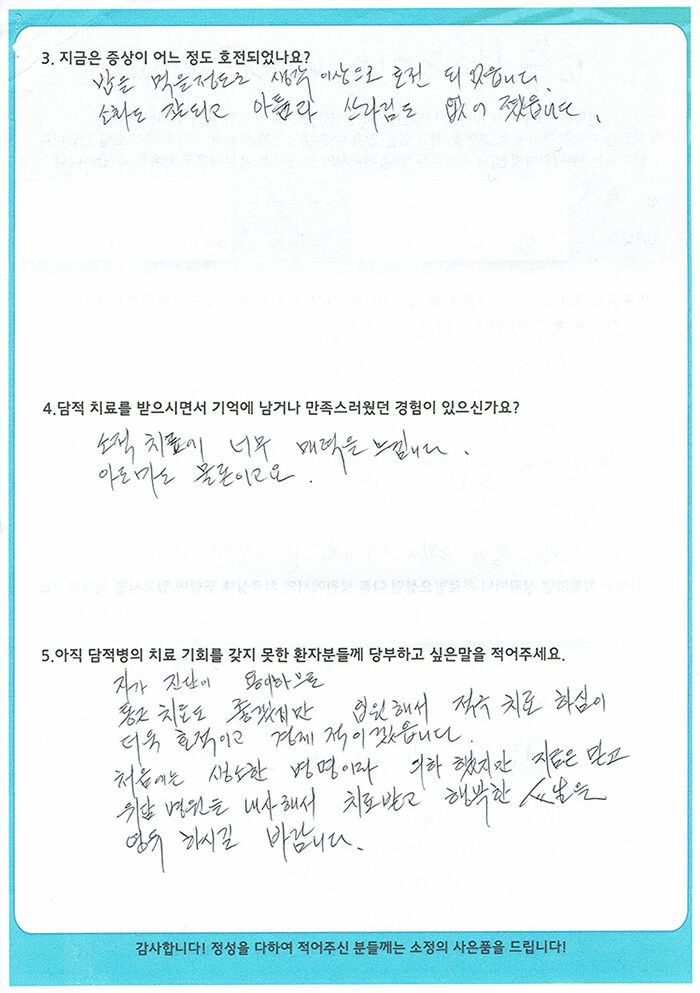 3. 지금은 증상이 어느 정도 호전되었나요?
밥을 먹을정도로 생각 이상으로 호전 되었읍니다.
소화도 잘되고 아픔과 쓰라림도 없어 졌읍니다.
4.담적 치료를 받으시면서 기억에 남거나 만족스러웠던 경험이 있으신가요?
소적 치료에 너무 매력을 느낍니다.
아로마도 물론이고요.
5.아직 담적병의 치료 기회를 갖지 못한 환자분들께 당부하고 싶은말을 적어주세요.
자가 진단이 용이하므로
통근 치료도 좋겠지만 입원해서 적극 치료 하심이
더욱 효적이고 경제 적이겠읍니다.
처음에는 생소한 병명이라 의아 했지만 지금은 믿고
위담 병원을 내사해서 치료받고 행복한 스날을
영위 하시길 바랍니다.
감사합니다! 정성을 다하여 적어주신 분들께는 소정의 사은품을 드립니다!